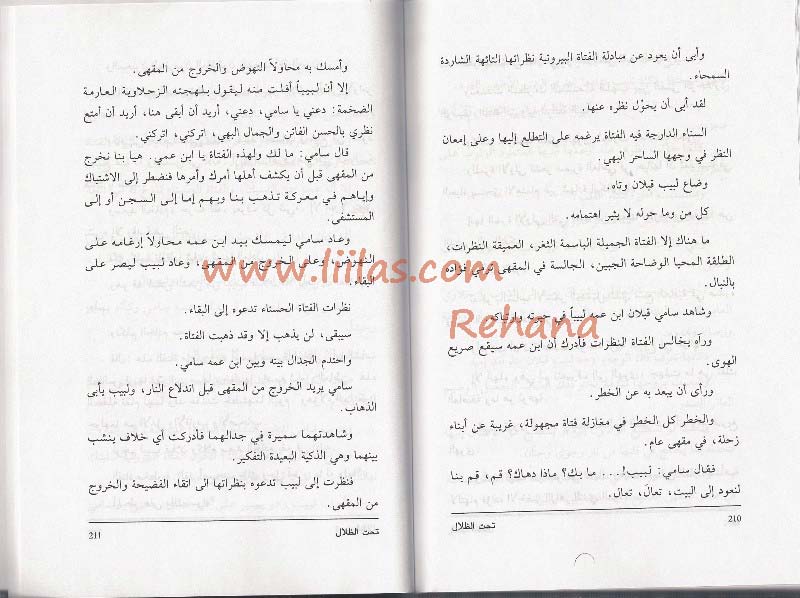 وأبى أن يعود عن مبادلة الفتاة البيروتية نظراتها التائهة الشاردة
السمحاء.
لقد أبى أن يحوّل نظره عنها.
السناء الدارجة فيه الفتاة يرغمه على التطلع إليها وعلى إمعان
النظر في وجهها الساحر البهي.
وضاع لبيب قبلان وتاه.
كل من وما حوله لا يثير اهتمامه.
ما هناك إلا الفتاة الجميلة الباسمة الثغر، العميقة النظرات،
الطلقة المحيا الوضاحة الجبين، الجالسة في المقهى ترمي فؤاده
بالنبال.
وشاهد سامي قبلان ابن عمه لبيباً في حيرته وارتباكه.
ورآه يخالس الفتاة النظرات فأدرك أن ابن عمه سيقع صريع
الهوى.
ورأى أن يبعد به عن الخطر.
والخطر كل الخطر في مغازلة فتاة مجهولة، غريبة عن أبناء
زحلة، في مقهى عام.
فقال سامي: لبيب!... ما بك؟ ماذا دهاك؟ قم، قم بنا
لنعود إلى البيت، تعالَ، تعال.
210
تحت الظلال
وأمسك به محاولاً النهوض والخروج من المقهى.
إلا أن لبيباً أفلت منه ليقول بلهجته الزحلاوية العارمة
الضخمة: دعني يا سامي، دعني، أريد أن أبقى هنا، أريد أن أمتع
نظري بالحسن الفاتن والجمال البهي، اتركني، اتركني.
قال سامي: ما لك ولهذه الفتاة يا ابن عمي. هيا بنا نخرج
من المقهى قبل أن يكشف أهلها أمرك وأمرها فنضطر إلى الاشتباك
وإياهم في معركة تذهب بنا وبهم إما إلى السجن أو إلى
المستشفى.
وعاد سامي ليمسك بيد ابن عمه محاولاً إرغامه على
النهوض، وعلى الخروج من المقهى، وعاد لبيب ليصر على
البقاء.
نظرات الفتاة الحسناء تدعوه إلى البقاء.
سيبقى، لن يذهب إلا وقد ذهبت الفتاة.
واحتدم الجدال بينه وبين ابن عمه سامي.
سامي يريد الخروج من المقهى قبل اندلاع النار، ولبيب يأبى
الذهاب.
وشاهدتهما سميرة في جدالهما فأدركت أي خلاف ينشب
بينهما وهي الذكية البعيدة التفكير.
فنظرت إلى لبيب تدعوه بنظراتها الى اتقاء الفضيحة والخروج
من المقهى.
تحت الظلال
211
www.liilas.com
Rehana